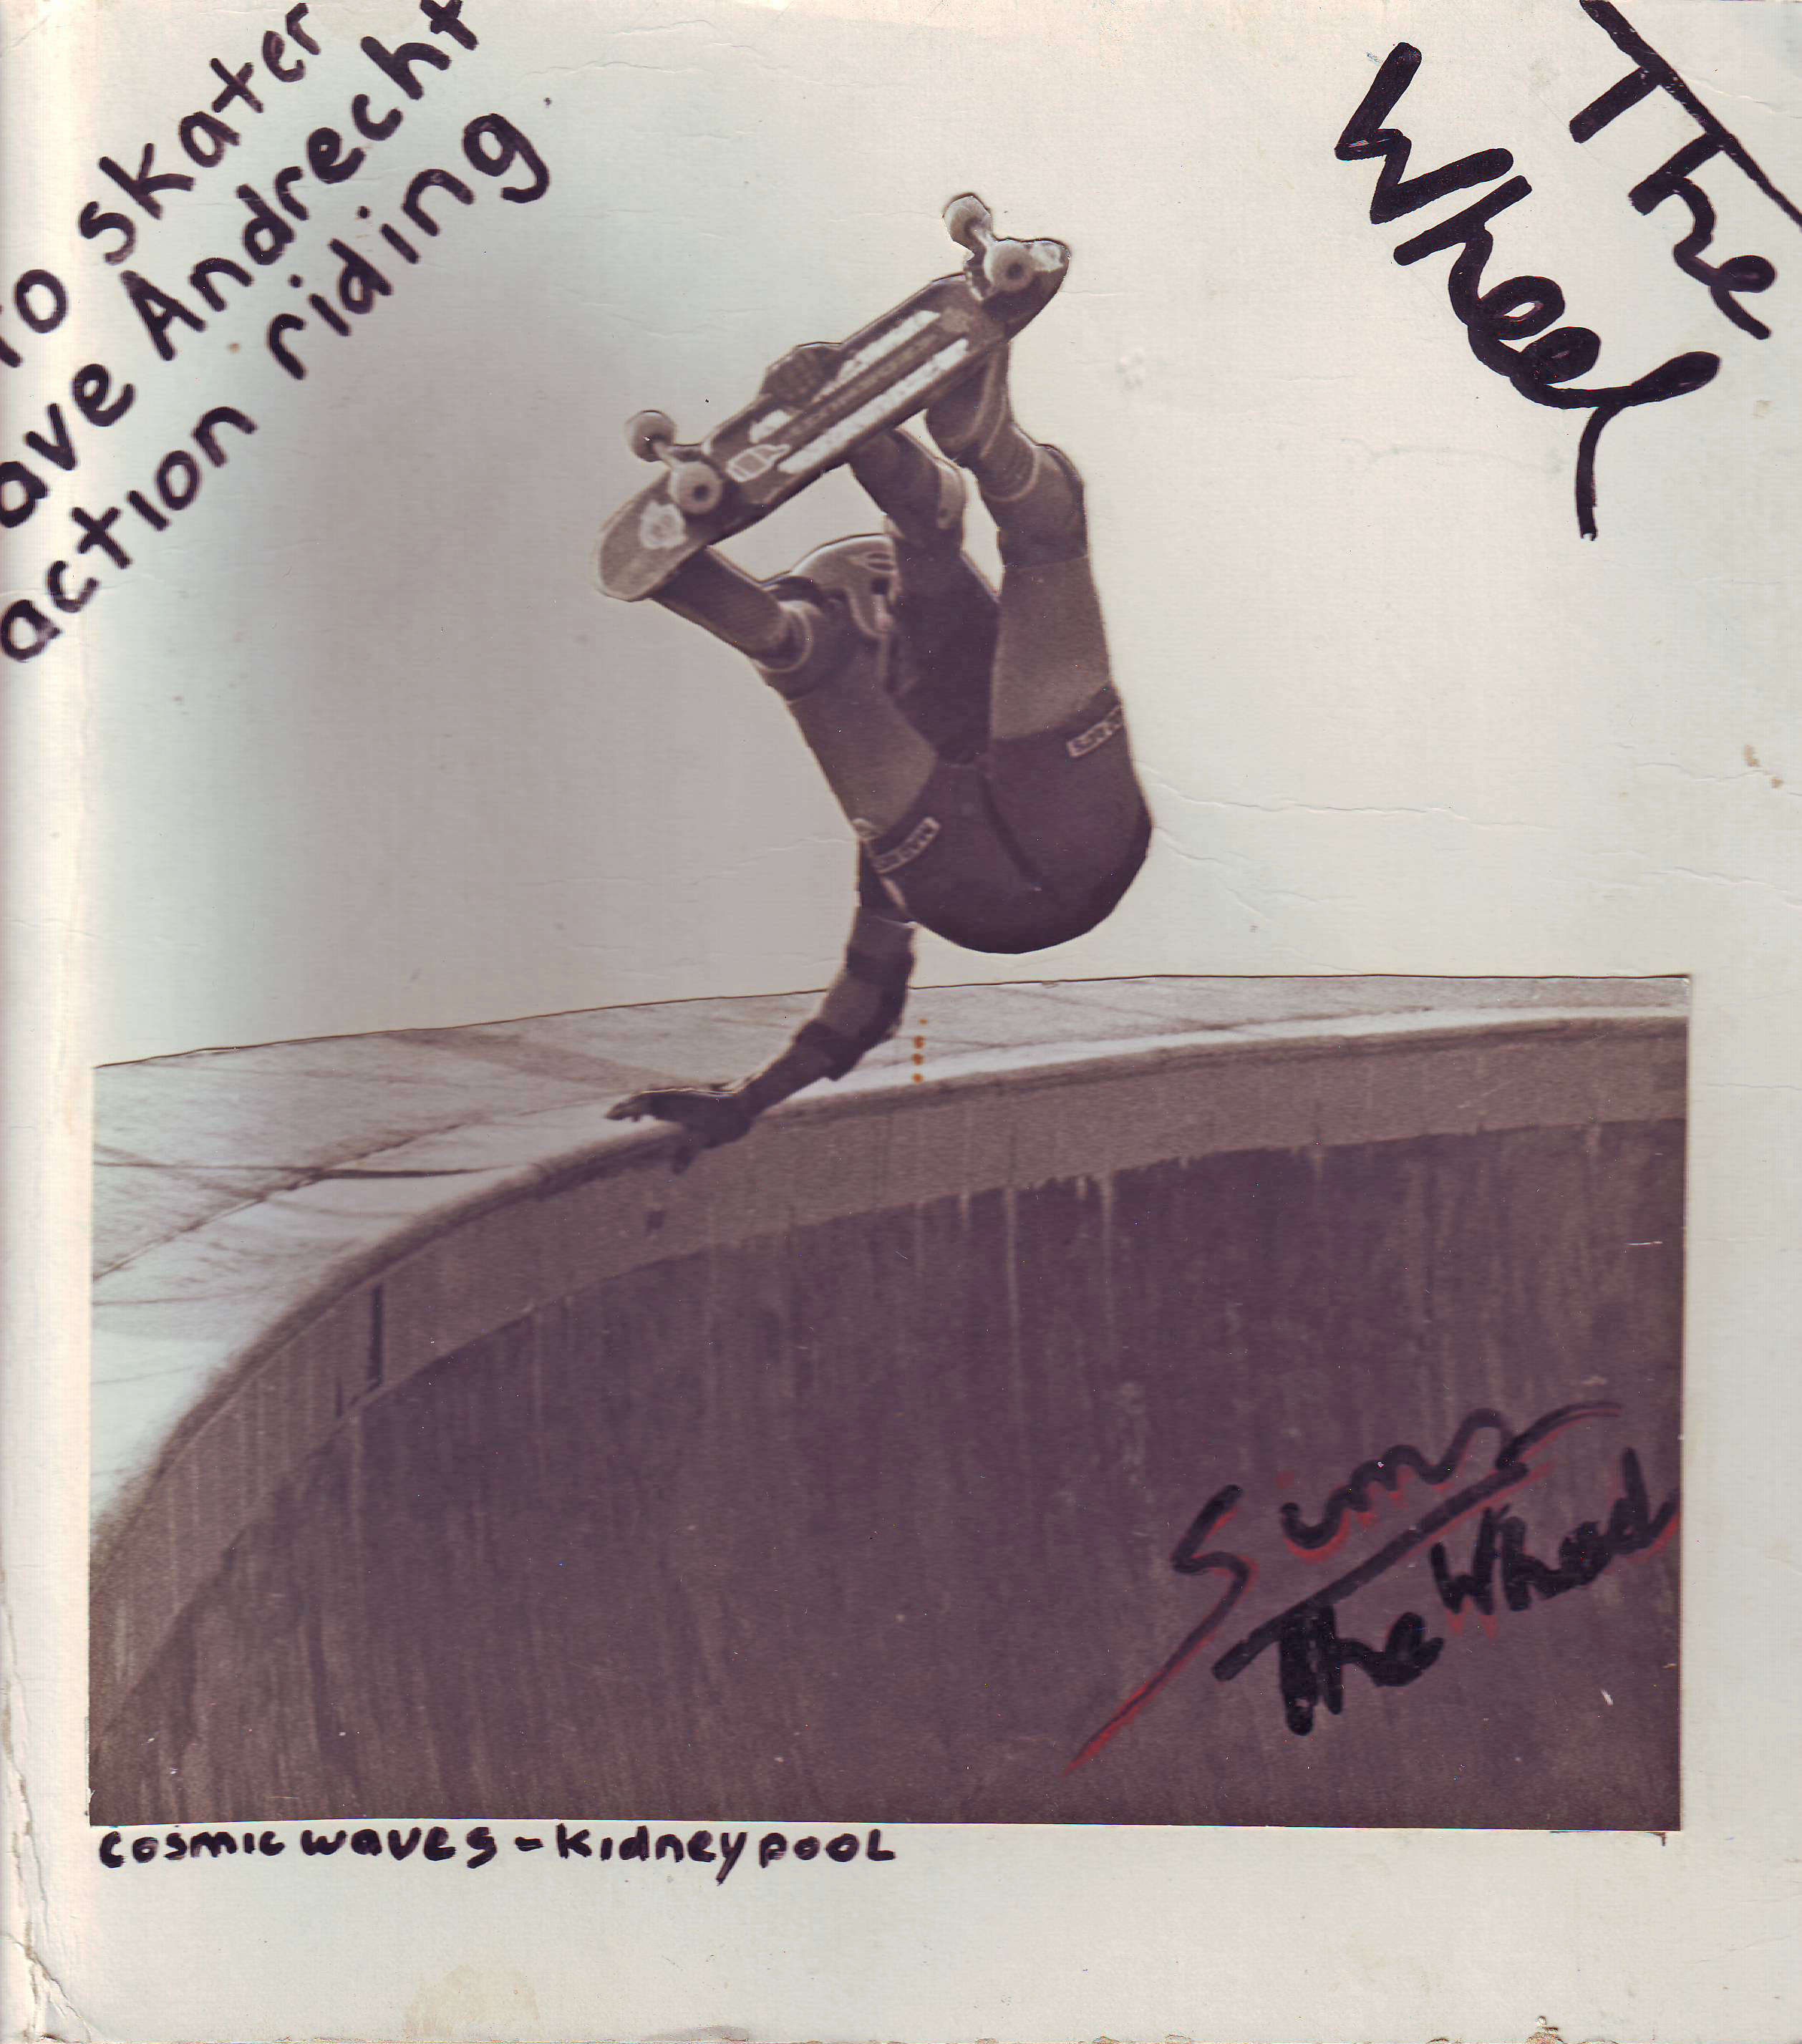 ro skater
ave Andrecht
action riding
The
Wheel
Sims
The Wheel
cosmic waves - kidney pool